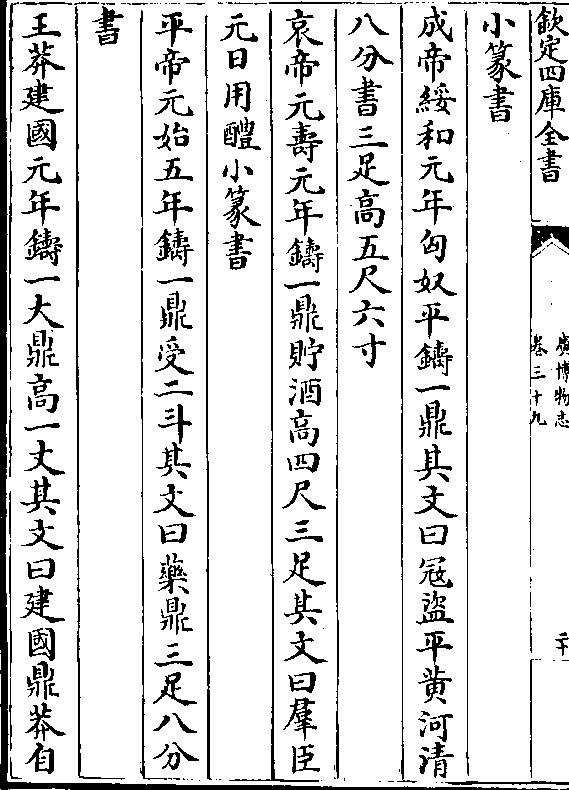 欽定四庫全書
廣博物志
卷三十九
二十
小篆書
成帝綏和元年匈奴平鑄一鼎其文曰冦盜平黄河清
八分書三足高五尺六寸
哀帝元壽元年鑄一鼎貯酒高四尺三足其文曰羣臣
元日用醴小篆書
平帝元始五年鑄一鼎受二斗其文曰藥鼎三足八分
書
王莽建國元年鑄一大鼎高一丈其文曰建國鼎莽自